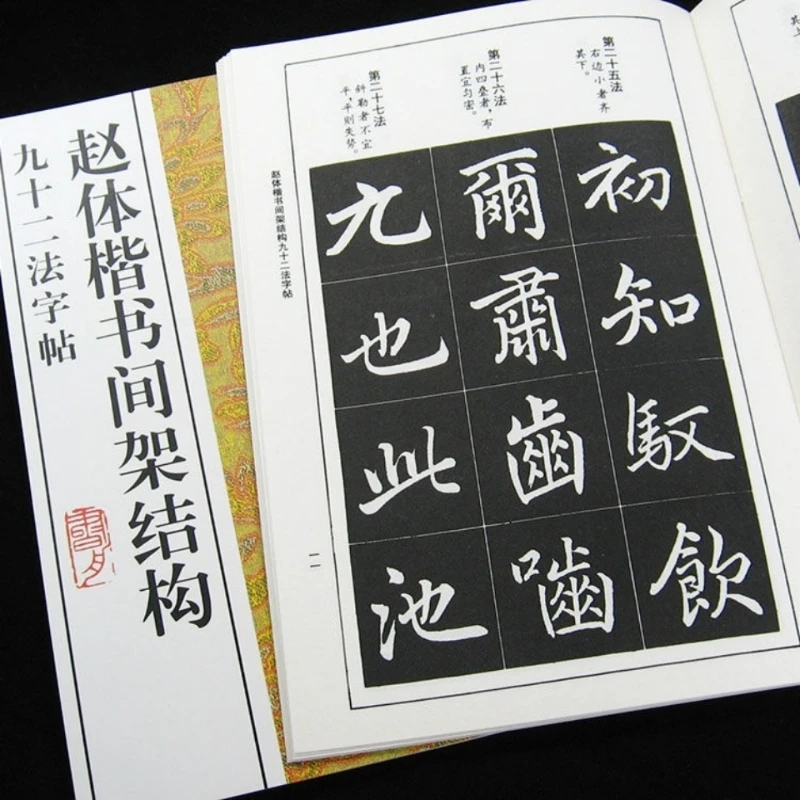 赵体楷书间架结构
九十二法字帖
第二十五法
右边小者齐
其下。
初知馭飲
第二十六法
内四叠者，布
直宜匀密。
爾肅齒嚙
第二十七法
斜勒者不宜
平，平则失势。
九也此池
赵体楷书间架结构九十二法字帖
一一